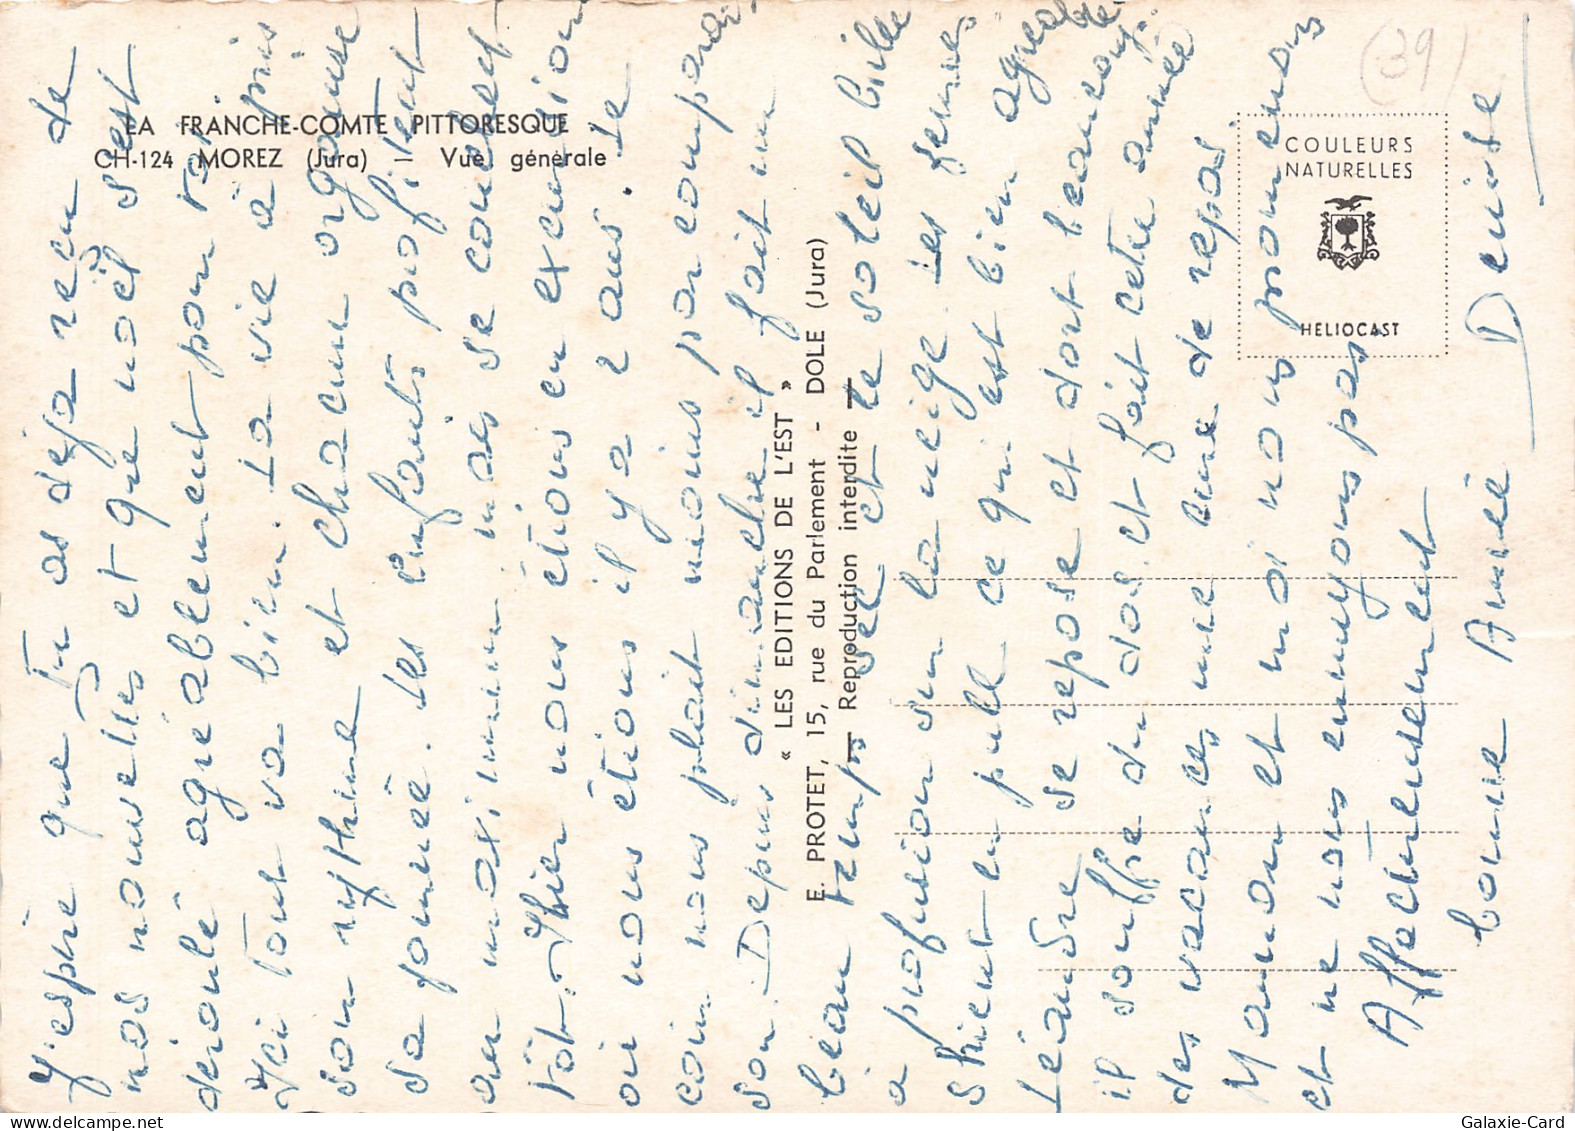 LA FRANCHE-COMTE PITTORESQUE
CH-124 MOREZ (Jura) Vue générale
« LES EDITIONS DE L'EST »
E. PROTET, 15, rue du Parlement - DOLE (Jura)
Reproduction interdite
COULEURS
NATURELLES
HELIOCAST
(39)
J'espère que Tu as déjà reçu de
nos nouvelles et que noël s'est
déroulé agréablement pour toi
Ici Tout va bien. La vie a pris
son rythme et chacun organise
sa journée. Les enfants profitent
au maximum mais se couchent
tôt. Hier nous étions en excursion
où nous étions il y a 2 ans. Le
coin nous plait moins par comparai
son. Depuis dimanche il fait un
beau temps sec et le soleil brille
à profusion sur la neige. Les jeunes
skient en pull ce qui est bien agréable.
Léandre se repose et dort beaucoup
il souffre du dos. et fait cette année
des vacances une cure de repos
Maman et moi nous promenons
et ne nous ennuyons pas.
Affectueusement
Bonne Année Denise
Galaxie-Card